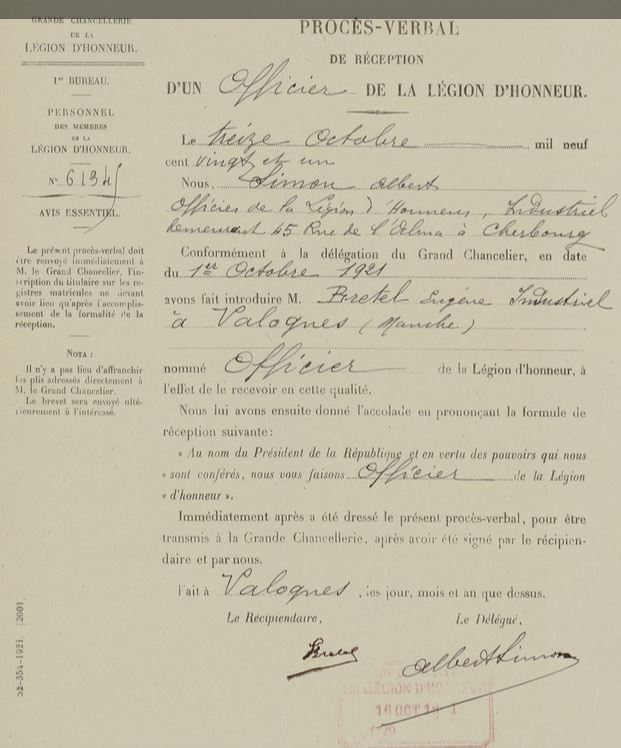 GRANDE CHANCELLERIE
DE LA
LÉGION D'HONNEUR.
1er BUREAU.
PERSONNEL
DES MEMBRES
DE LA
LÉGION D'HONNEUR.
N°
AVIS ESSENTIEL.
Le présent procès-verbal doit
être renvoyé immédiatement à
M. le Grand Chancelier, l'ins-
cription du titulaire sur les re-
gistres matricules ne devant
avoir lieu qu'après l'accomplis-
sement de la formalité de la
réception.
NOTA :
Il n'y a pas lieu d'affranchir
les plis adressés directement à
M. le Grand Chancelier.
Le brevet sera envoyé ulté-
rieurement à l'intéressé.
PROCÈS-VERBAL
DE RÉCEPTION
D'UN Officier DE LA LÉGION D'HONNEUR.
Le treize Octobre mil neuf
cent vingt et un
Nous, Simon Albert
Officier de la Légion d'Honneur, Industriel
demeurant 45 Rue de l'Alma à Cherbourg
Conformément à la délégation du Grand Chancelier, en date
du 1er Octobre 1921
avons fait introduire M. Bretel Eugène Industriel
à Valognes (Manche)
nommé Officier de la Légion d'honneur, à
l'effet de le recevoir en cette qualité.
Nous lui avons ensuite donné l'accolade en prononçant la formule de
réception suivante :
« Au nom du Président de la République et en vertu des pouvoirs qui nous
« sont conférés, nous vous faisons Officier de la Légion
« d'honneur ».
Immédiatement après a été dressé le présent procès-verbal, pour être
transmis à la Grande Chancellerie, après avoir été signé par le récipien-
daire et par nous.
Fait à Valognes, les jour, mois et an que dessus.
Le Récipiendaire,
Le Délégué,
Bretel
Albert Simon
LÉGION D'HO
16 OCT
52-354-1921. [2001]